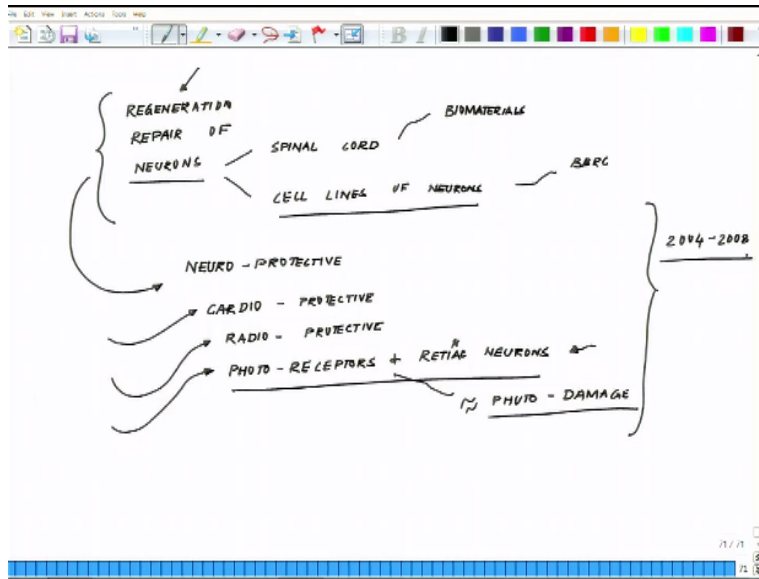 File Edit View Insert Actions Tools Help
B I
REGENERATION
REPAIR OF
NEURONS
SPINAL CORD
BIOMATERIALS
CELL LINES OF NEURONS
BARC
2004-2008
NEURO - PROTECTIVE
CARDIO - PROTECTIVE
RADIO - PROTECTIVE
PHOTO - RECEPTORS + RETINAL NEURONS
PHOTO - DAMAGE
71 / 71
71